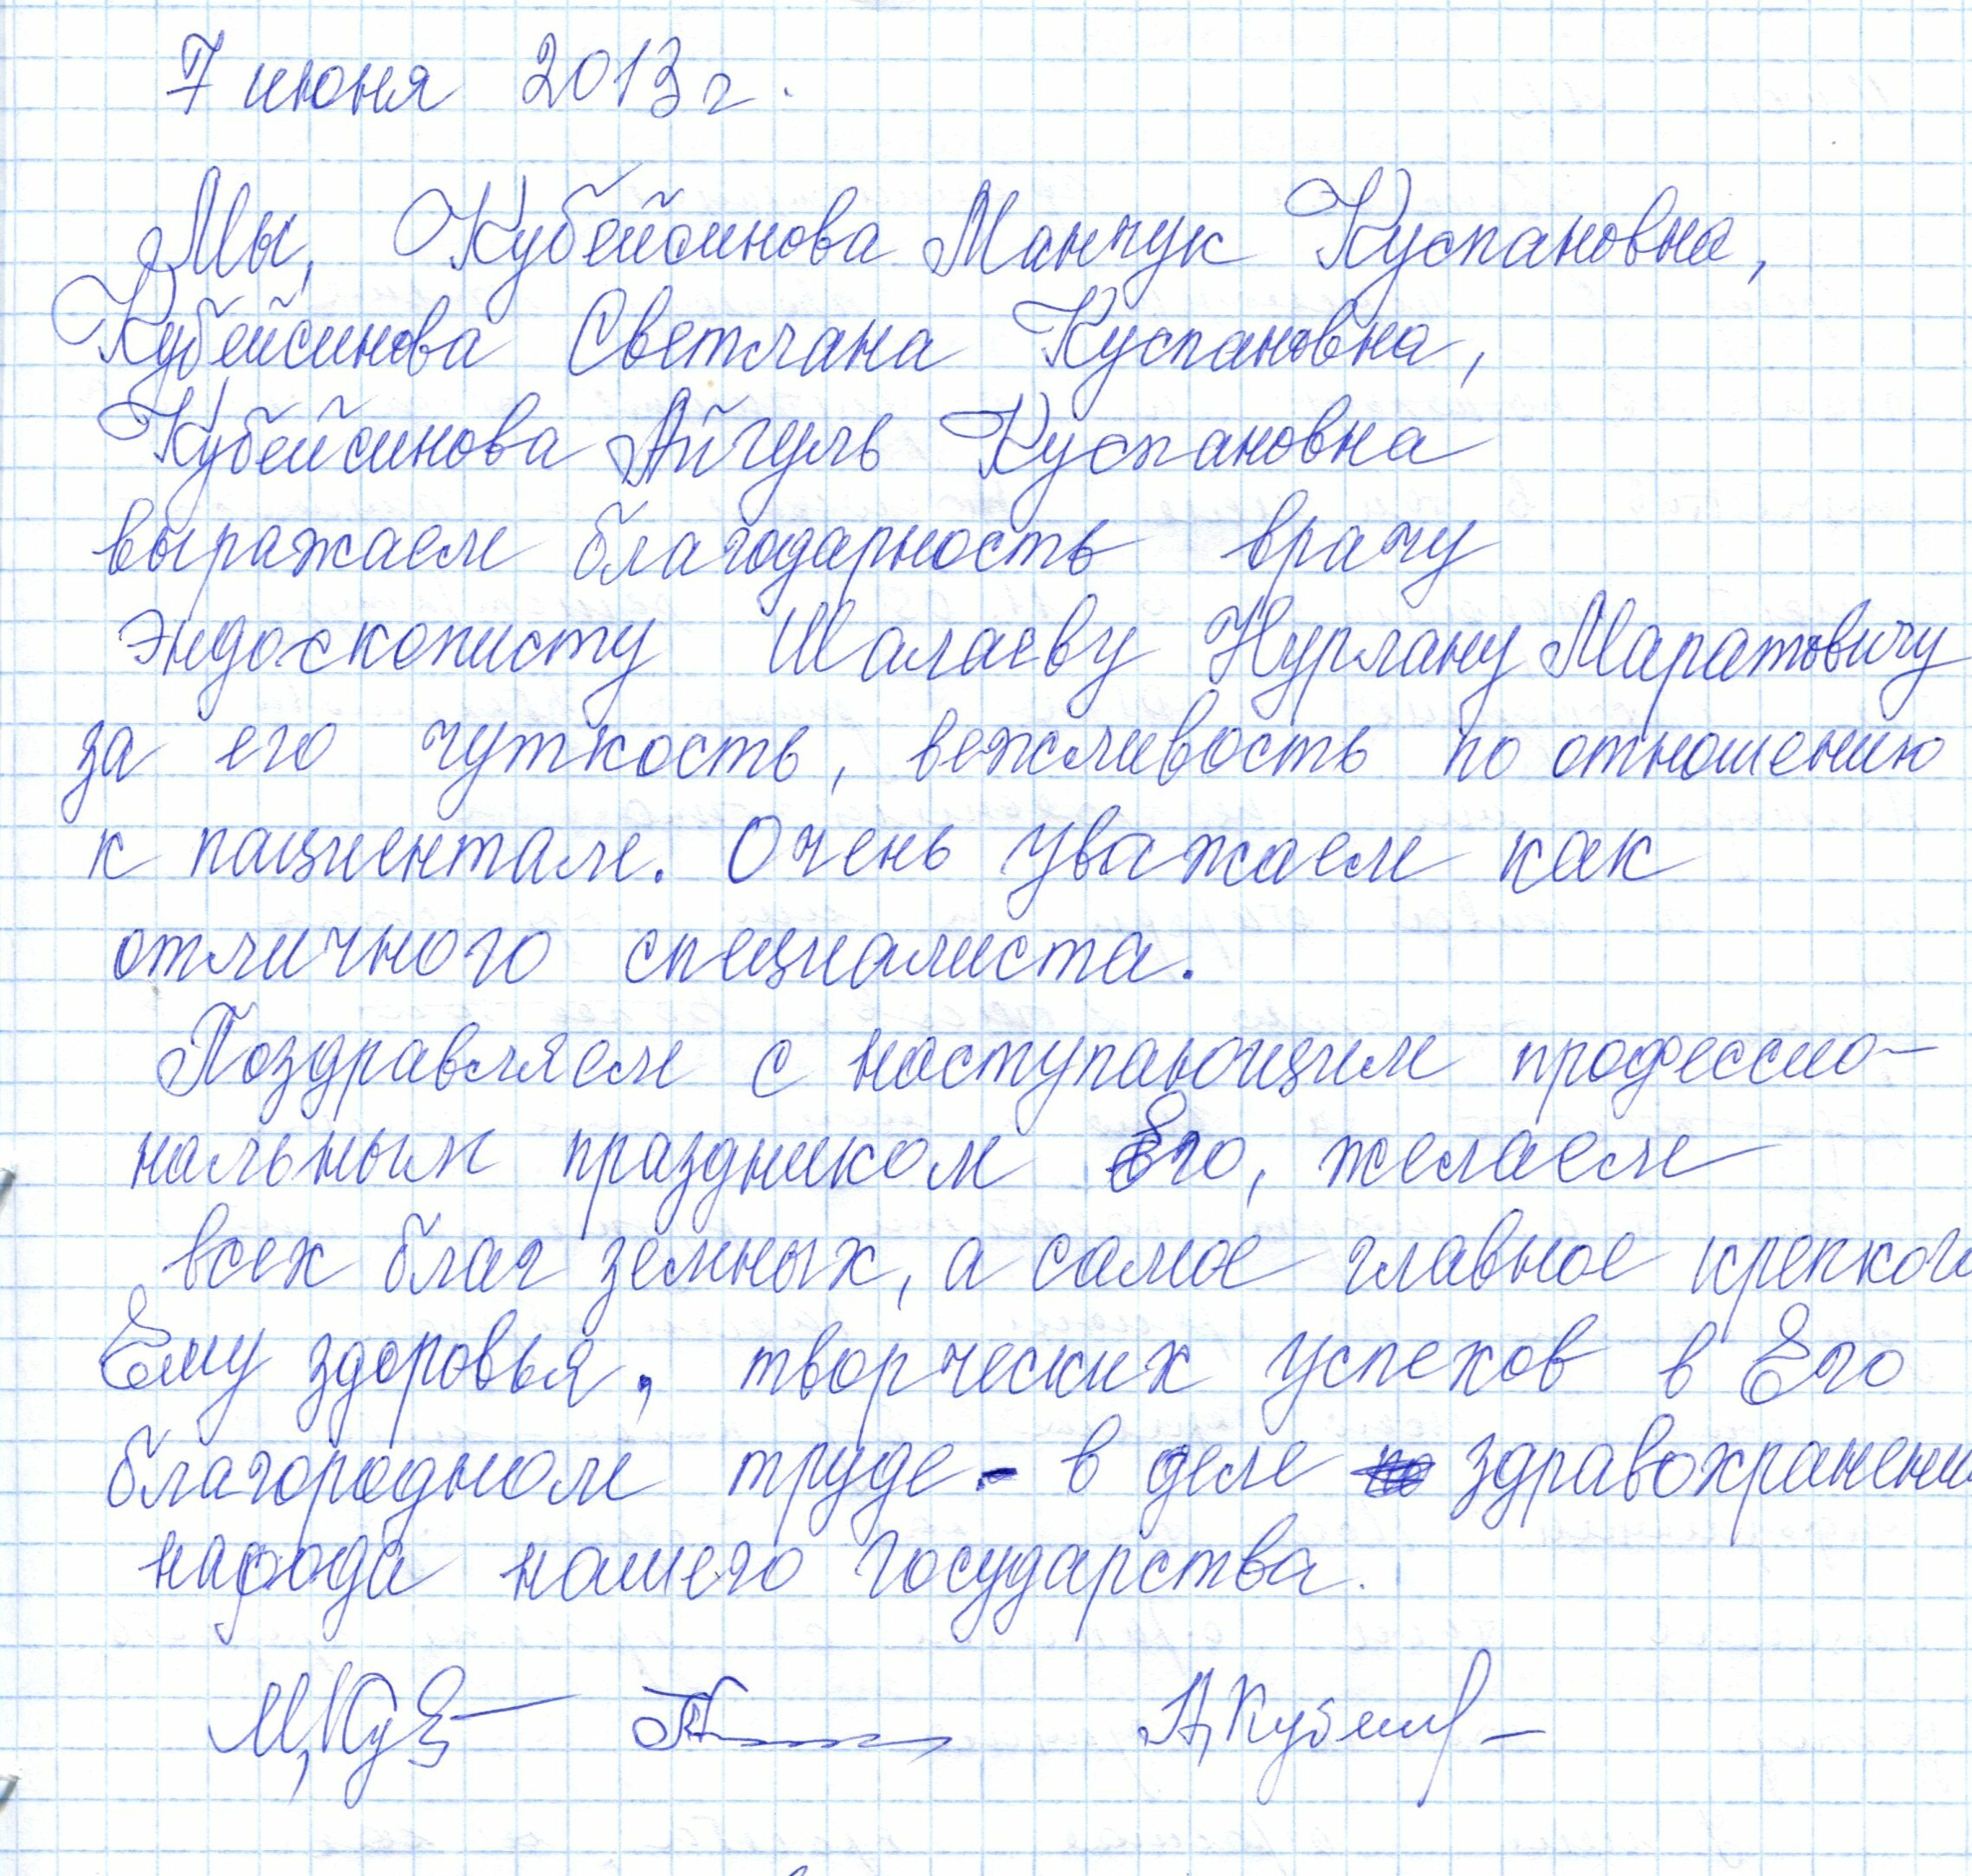 7 июня 2013 г.
Мы, Кубейсинова Маншук Куспановна,
Кубейсинова Светлана Куспановна,
Кубейсинова Айгуль Куспановна
выражаем благодарность врачу
эндоскописту Шалаеву Нурлану Маратовичу
за его чуткость, вежливость по отношению
к пациентам. Очень уважаем как
отличного специалиста.
Поздравляем с наступающим профессио-
нальным праздником Его, желаем
всех благ земных, а самое главное крепкого
Ему здоровья, творческих успехов в Его
благородном труде - в деле здравохранени
народа нашего государства.